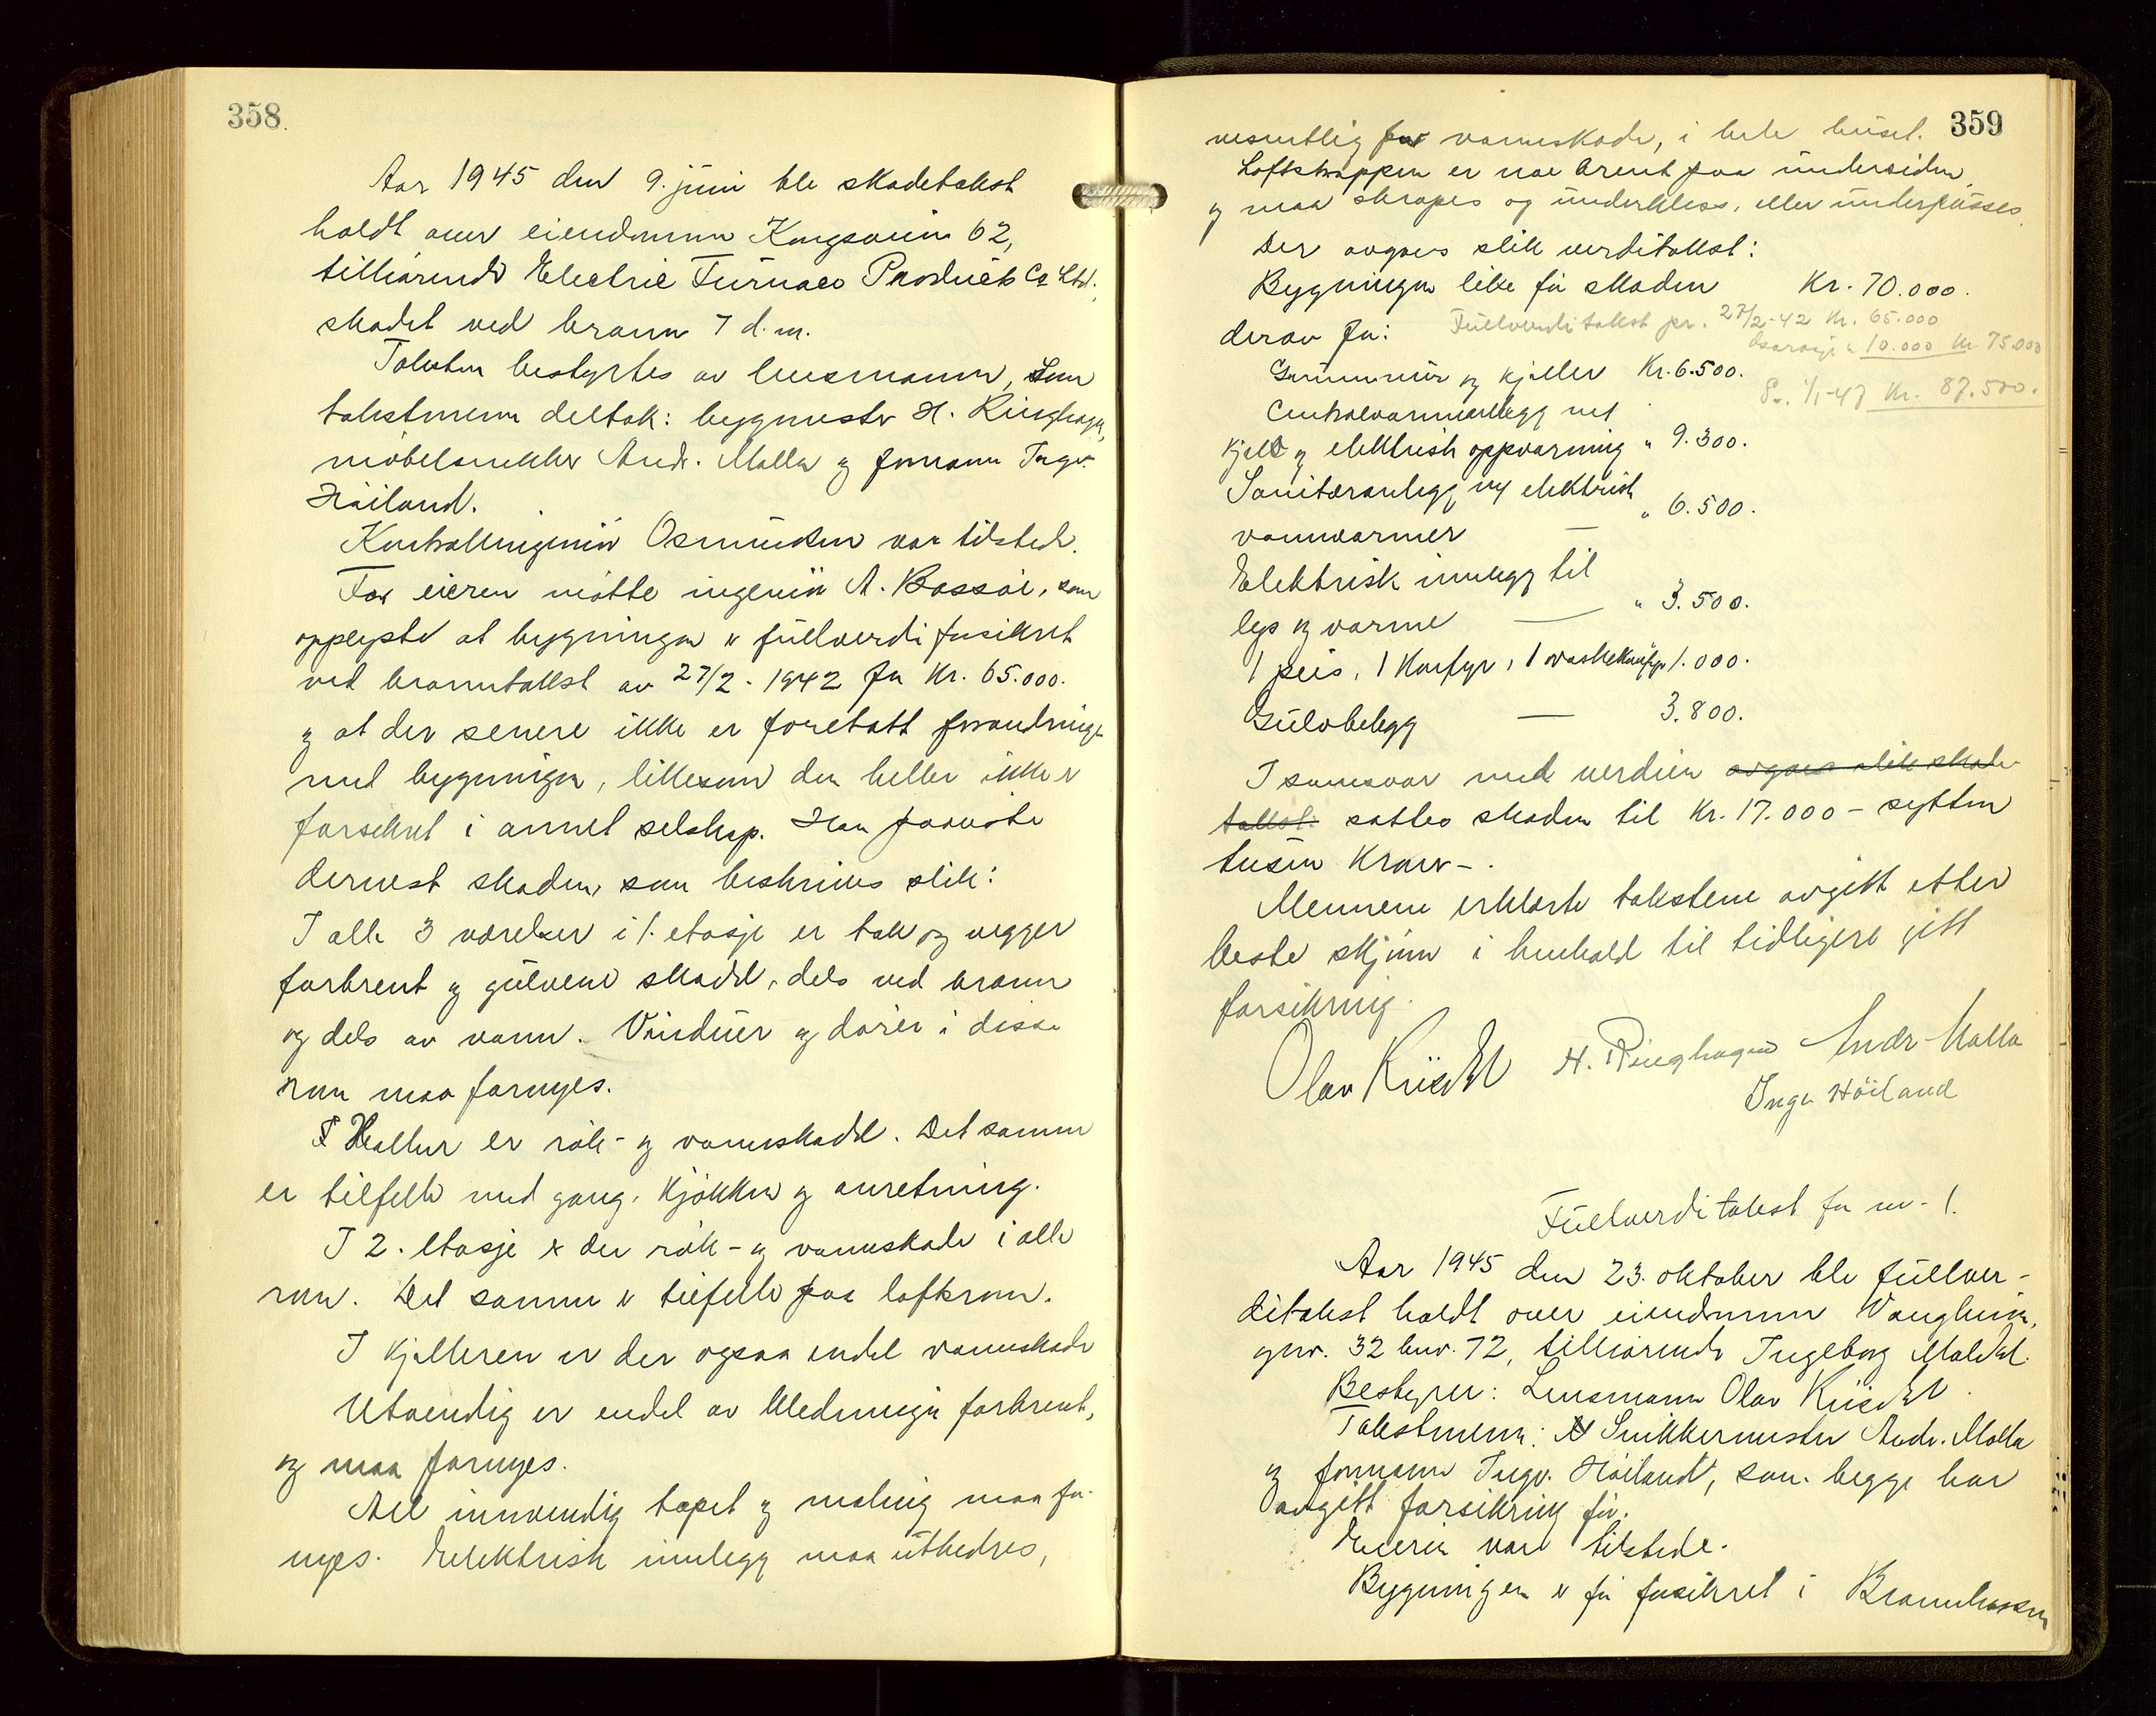 358.
Aar 1945 den 9. juni ble skadetakst
holdt over eiendommen Kongsveien 62,
tilhörende Electric Furnace Products Co Ltd.,
skadet ved brann 7 d.m.
Taksten bestyrtes av lensmannen, Som
takstmenn deltok: byggmester H. Ringhagen,
möbelsnekker Andr. Molla og formann Ingv.
Höiland.
Kontrollingeniör Osmundsen var tilstede.
For eieren mötte ingeniör A. Bassöe, som
opplyste at bygningen er fullverdiforsikret
ved branntakst av 27/2-1942 for Kr. 65.000.
og at der senere ikke er foretatt forandringer
med bygningen, likesom den heller ikke er
forsikret i annet selskap. Han foreviste
dernest skaden, som beskrives slik:
I alle 3 værelser i 1. etasje er tak og vegger
forbrent og gulvene skadet, dels ved brann
og dels av vann. Vinduer og dörer i disse
rom maa fornyes.
Hallen er rök- og vannskadet. Det samme
er tilfelle med gang, kjökken og anretning.
I 2. etasje er der rök- og vannskade i alle
rom. Det samme er tilfelle paa loftsrom.
I kjelleren er der ogsaa endel vannskade
Utvendig er endel av kledningen forbrent,
og maa fornyes.
All innvendig tapet og maling maa for-
nyes. Elektrisk innlegg maa utbedres,
359
vesentlig for vannskade, i hele huset.
Loftstrappen er noe brent paa undersiden
og maa skrapes og underkless, eller underpusses
Der avgaves slik verditakst:
Bygningen like før skaden Kr. 70.000.
Fullverditakst pr. 27/2-42 Kr. 65.000
Garasje " 10.000 Kr 75.000
Pr. 1/1-47 Kr. 87.500.
derav for:
Grunnmur og kjeller Kr. 6.500.
Centralvarmeanlegg med
kjele og elektrisk oppvarming " 9.300.
Sanitæranlegg og elektrisk
vannvarmer — " 6.500.
Elektrisk innlegg til
lys og varme — " 3.500.
1 peis, 1 Komfyr, 1 vaskekomfyr 1.000.
Gulvbelegg — 3.800.
I samsvar med verdien avgaves slik skade-
takst: sattes skaden til Kr. 17.000 - sytten
tusen Kroner-.
Mennene erklærte takstene avgitt etter
beste skjönn i henhold til tidligere gitt
forsikring.
Olav Kris H. Ringhagen Andr. Molla
Ingv. Höiland
Fullverditakst for nr. 1.
Aar 1945 den 23. oktober ble fullver-
ditakst holdt over eiendommen Vangheim,
gnr. 32 bnr. 72, tilhörende Ingeborg
Bestyrer: Lensmann Olav
Takstmenn: Snikkermester Andr. Molla
og formann Ingv. Höiland, som begge har
avgitt forsikring för.
Eieren var tilstede.
Bygningen er för forsikret i Brannkassen